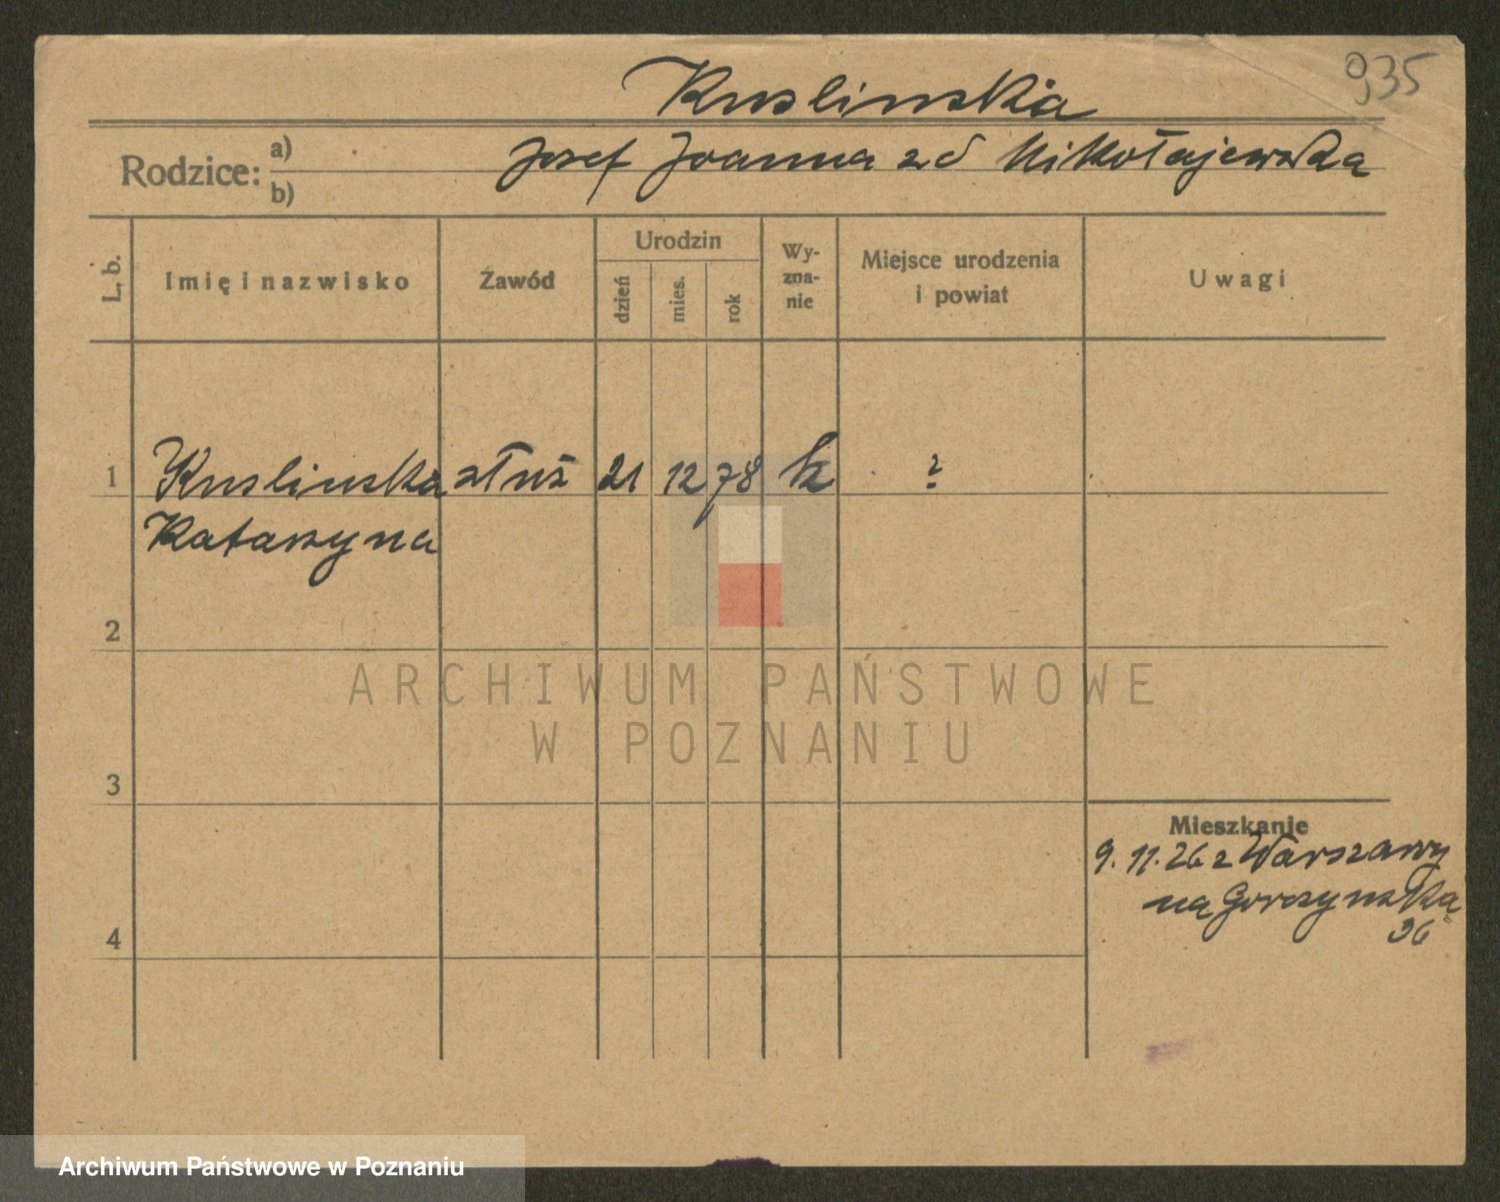 935
Kuslinska
Rodzice: a)
b)
Josef Joanna zd Mikołajewska
L. b.
Imię i nazwisko
Zawód
Urodzin
dzień
mies.
rok
Wy-
zna-
nie
Miejsce urodzenia
i powiat
Uwagi
1 Kuslinska służ 21 12 78 k ?
Katarzyna
2
3
4
Mieszkanie
9. 11. 26 z Warszawy
na Gorczynską
36
ARCHIWUM PAŃSTWOWE
W POZNANIU
Archiwum Państwowe w Poznaniu